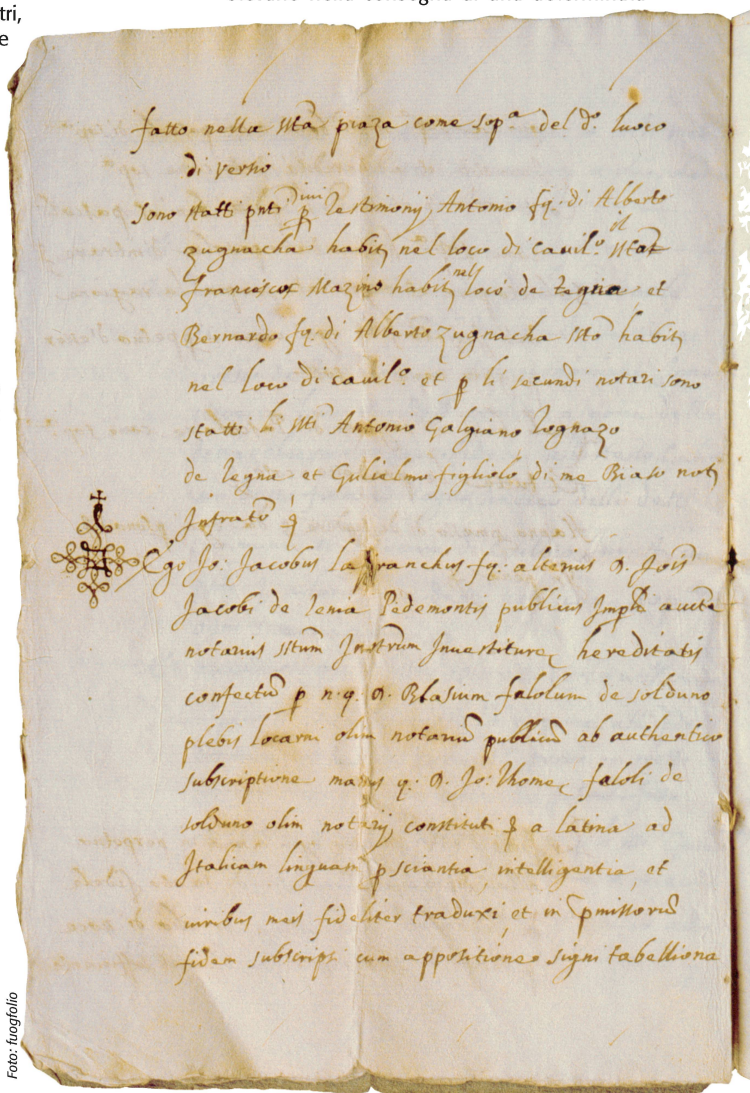 tri,
e
fatto nella sttã piaza come sop.ª del d.º luoco
di versio
sono statti pnti p Testimonij Antonio fq. di Alberto
zugnacha habit, nel loco di cavil.º
il
Francisco Mazino habit, nell loco de tegna et
Bernardo fq. di Alberto zugnacha sttõ habit,
nel loco di cavil.º et p li secundi notari sono
statti li stti Antonio Galgiano
de Tegna et Gulielmo figliolo di me Biaso not,
Infratõ
Ego Jo: Jacobus lafranchus fq. alterius D. Jois
Jacobi de Pedemontis publicus Imp.li aucte
notarius sttum Instrum Investiture hereditatis
confectũ p n.q. D. Blasium falolum de solduno
plebis locarni olim notariũ publicũ ab authentico
subscriptione manus q. D. Jo: Thome faloli de
solduno olim notarij, constituti a latina ad
Italicam linguam p sciantia intelligentia et
viribus meis fideliter traduxi et in pmissorũ
fidem subscripsi cum appositione signi tabelliona
Foto: fuogfolio